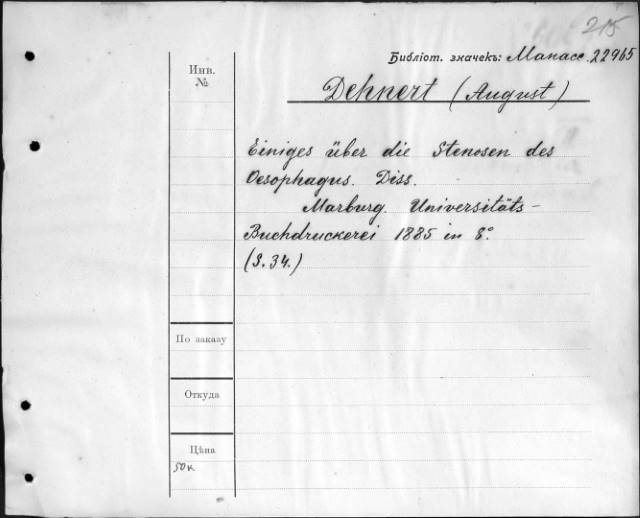 215
Библіот. значекъ: Манасс. 22965
Инв.
№
Dehnert (August)
Einiges über die Stenosen des
Oesophagus. Diss.
Marburg. Universitäts-
Buchdruckerei 1885 in 8°.
(S. 34.)
По заказу
Откуда
Цѣна
50 к